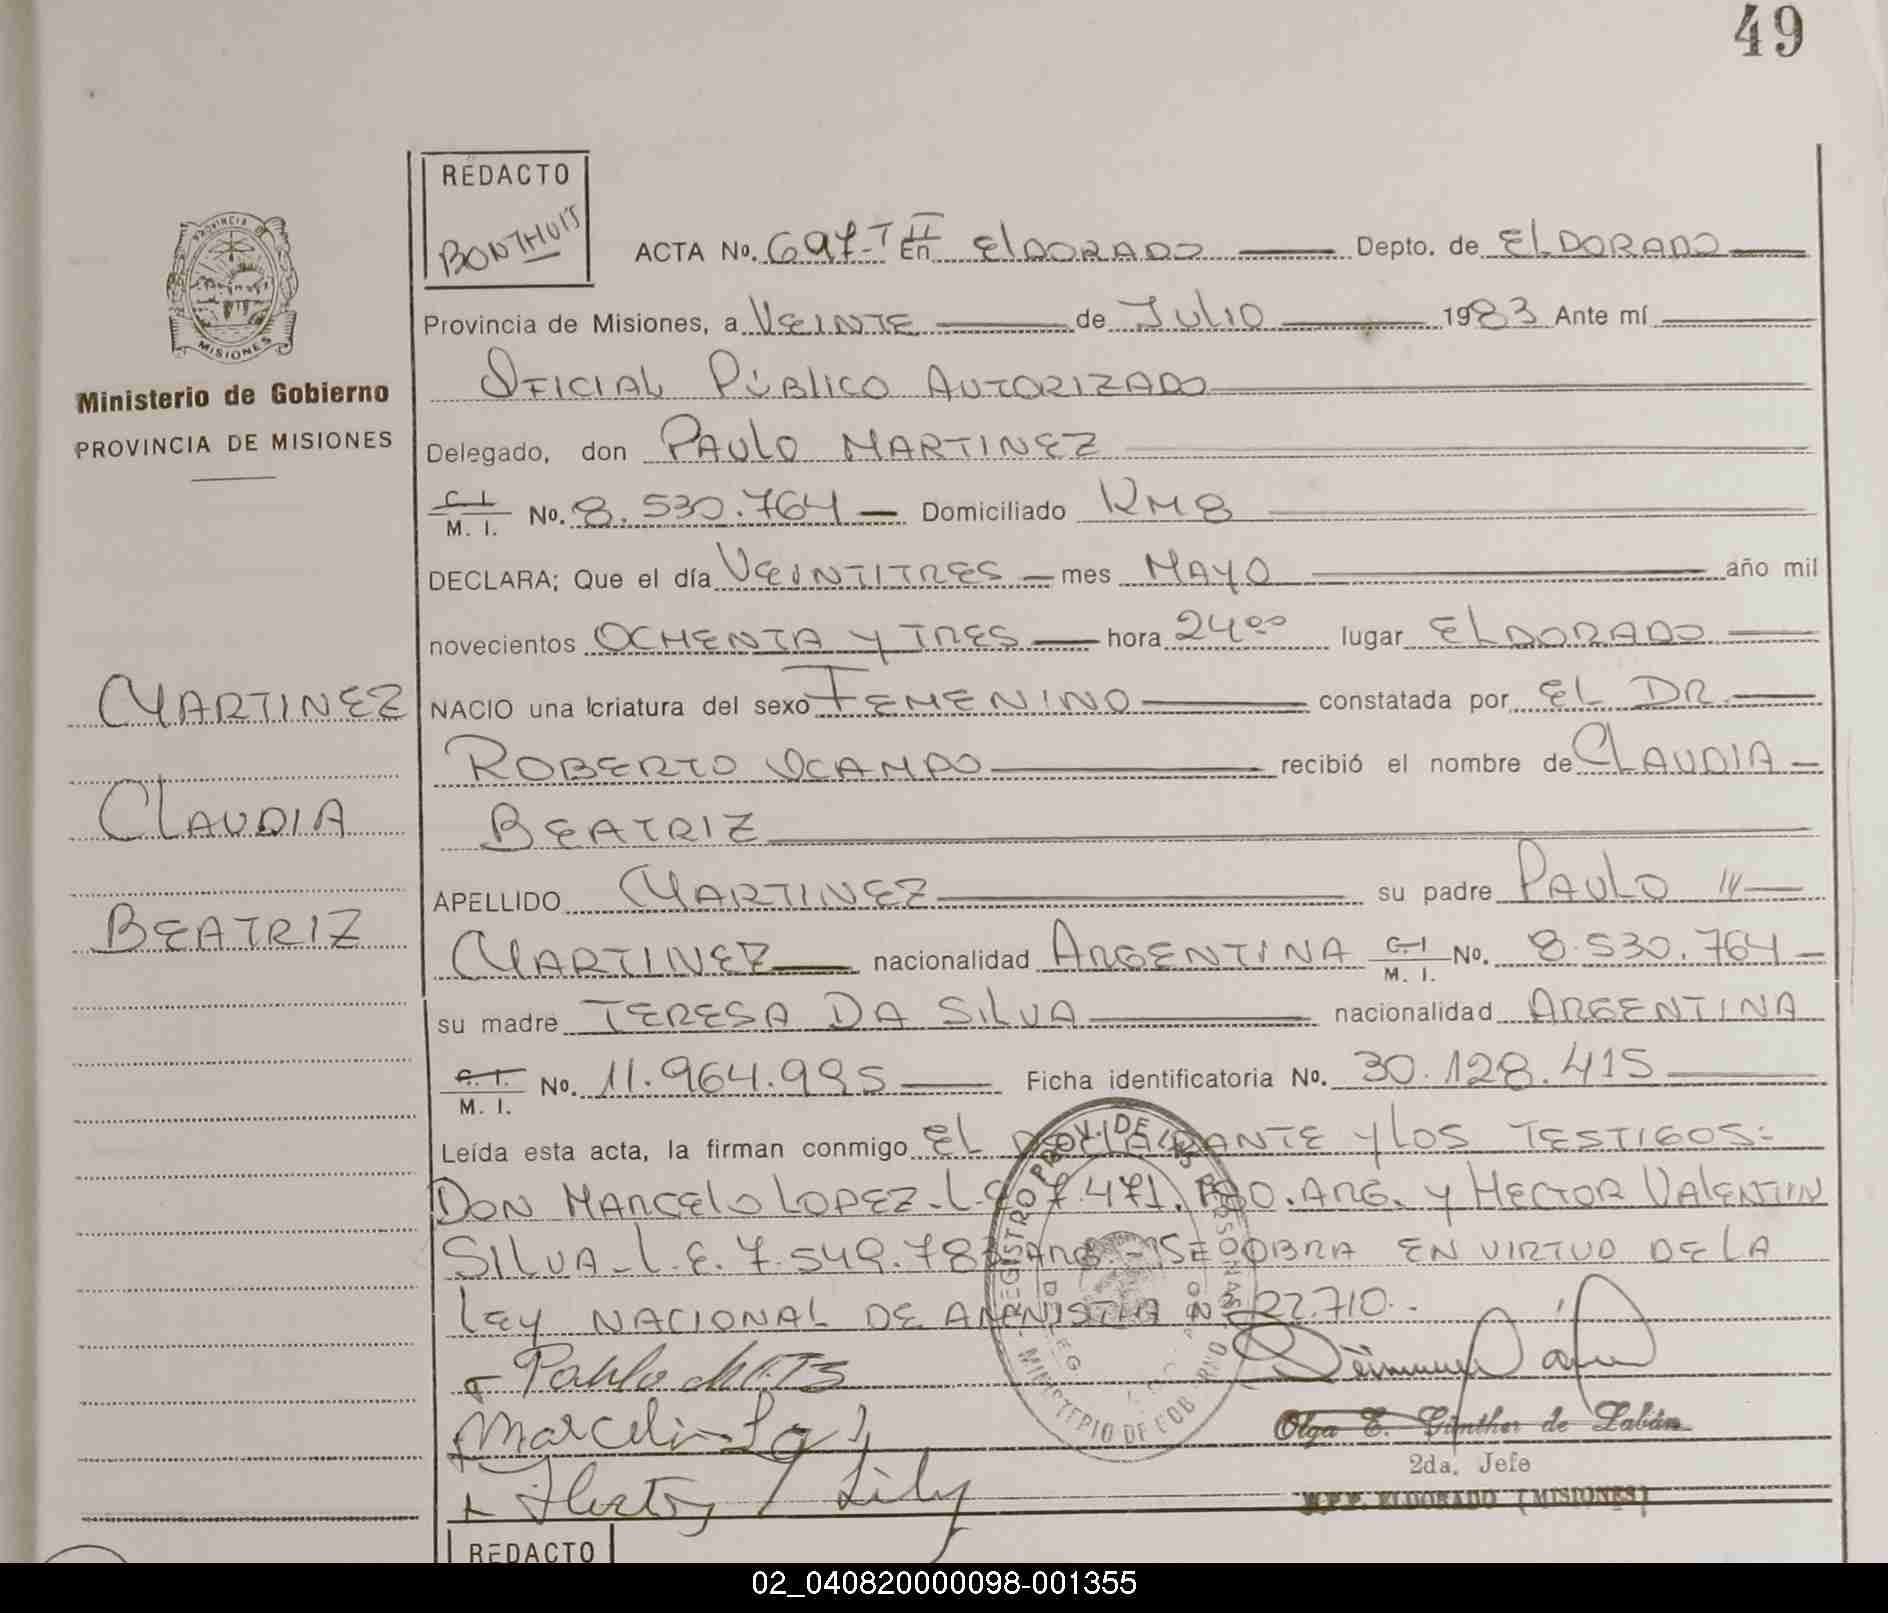 49
REDACTO
BONTHUIS
PROVINCIA DE
MISIONES
Ministerio de Gobierno
PROVINCIA DE MISIONES
ACTA No. 697-T II En ElDORADO Depto. de ElDORADO
Provincia de Misiones, a VEINTE de JULIO 1983 Ante mí
OFICIAL PÚBLICO AUTORIZADO
Delegado, don PAULO MARTINEZ
C. I. M. I. No. 8.530.764 Domiciliado KM8
DECLARA; Que el día VEINTITRES mes MAYO año mil
novecientos OCHENTA Y TRES hora 24 00 lugar ELDORADO
MARTINEZ
NACIO una criatura del sexo FEMENINO constatada por EL DR.
ROBERTO OCAMPO recibió el nombre de CLAUDIA
CLAUDIA
BEATRIZ
APELLIDO MARTINEZ su padre PAULO
BEATRIZ
MARTINEZ nacionalidad ARGENTINA C. I. M. I. No. 8.530.764
su madre TERESA DA SILVA nacionalidad ARGENTINA
C. I. M. I. No. 11.964.995 Ficha identificatoria No. 30.128.415
Leída esta acta, la firman conmigo EL DECLARANTE Y LOS TESTIGOS:
DON MARCELO LOPEZ-L.E. 7.471. ARG. Y HECTOR VALENTIN
SILVA-L.E. 7.549.78 ARG.-SE OBRA EN VIRTUD DE LA
LEY NACIONAL DE AMNISTIA Nº 22.710.-
REGISTRO PROV. DE LAS PERSONAS
MINISTERIO DE GOBIERNO
Olga E. Günther de Labán
2da. Jefe
R.P.P. ELDORADO (MISIONES)
REDACTO
02_040820000098-001355